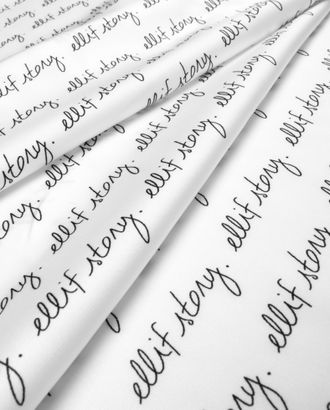 ellif story. ellif story. ellif story.
ellif story. ellif story. ellif story.
ellif story. ellif story. ellif story.
ellif story. ellif story. ellif story.
ellif story. ellif story. ellif story.
ellif story. ellif story.